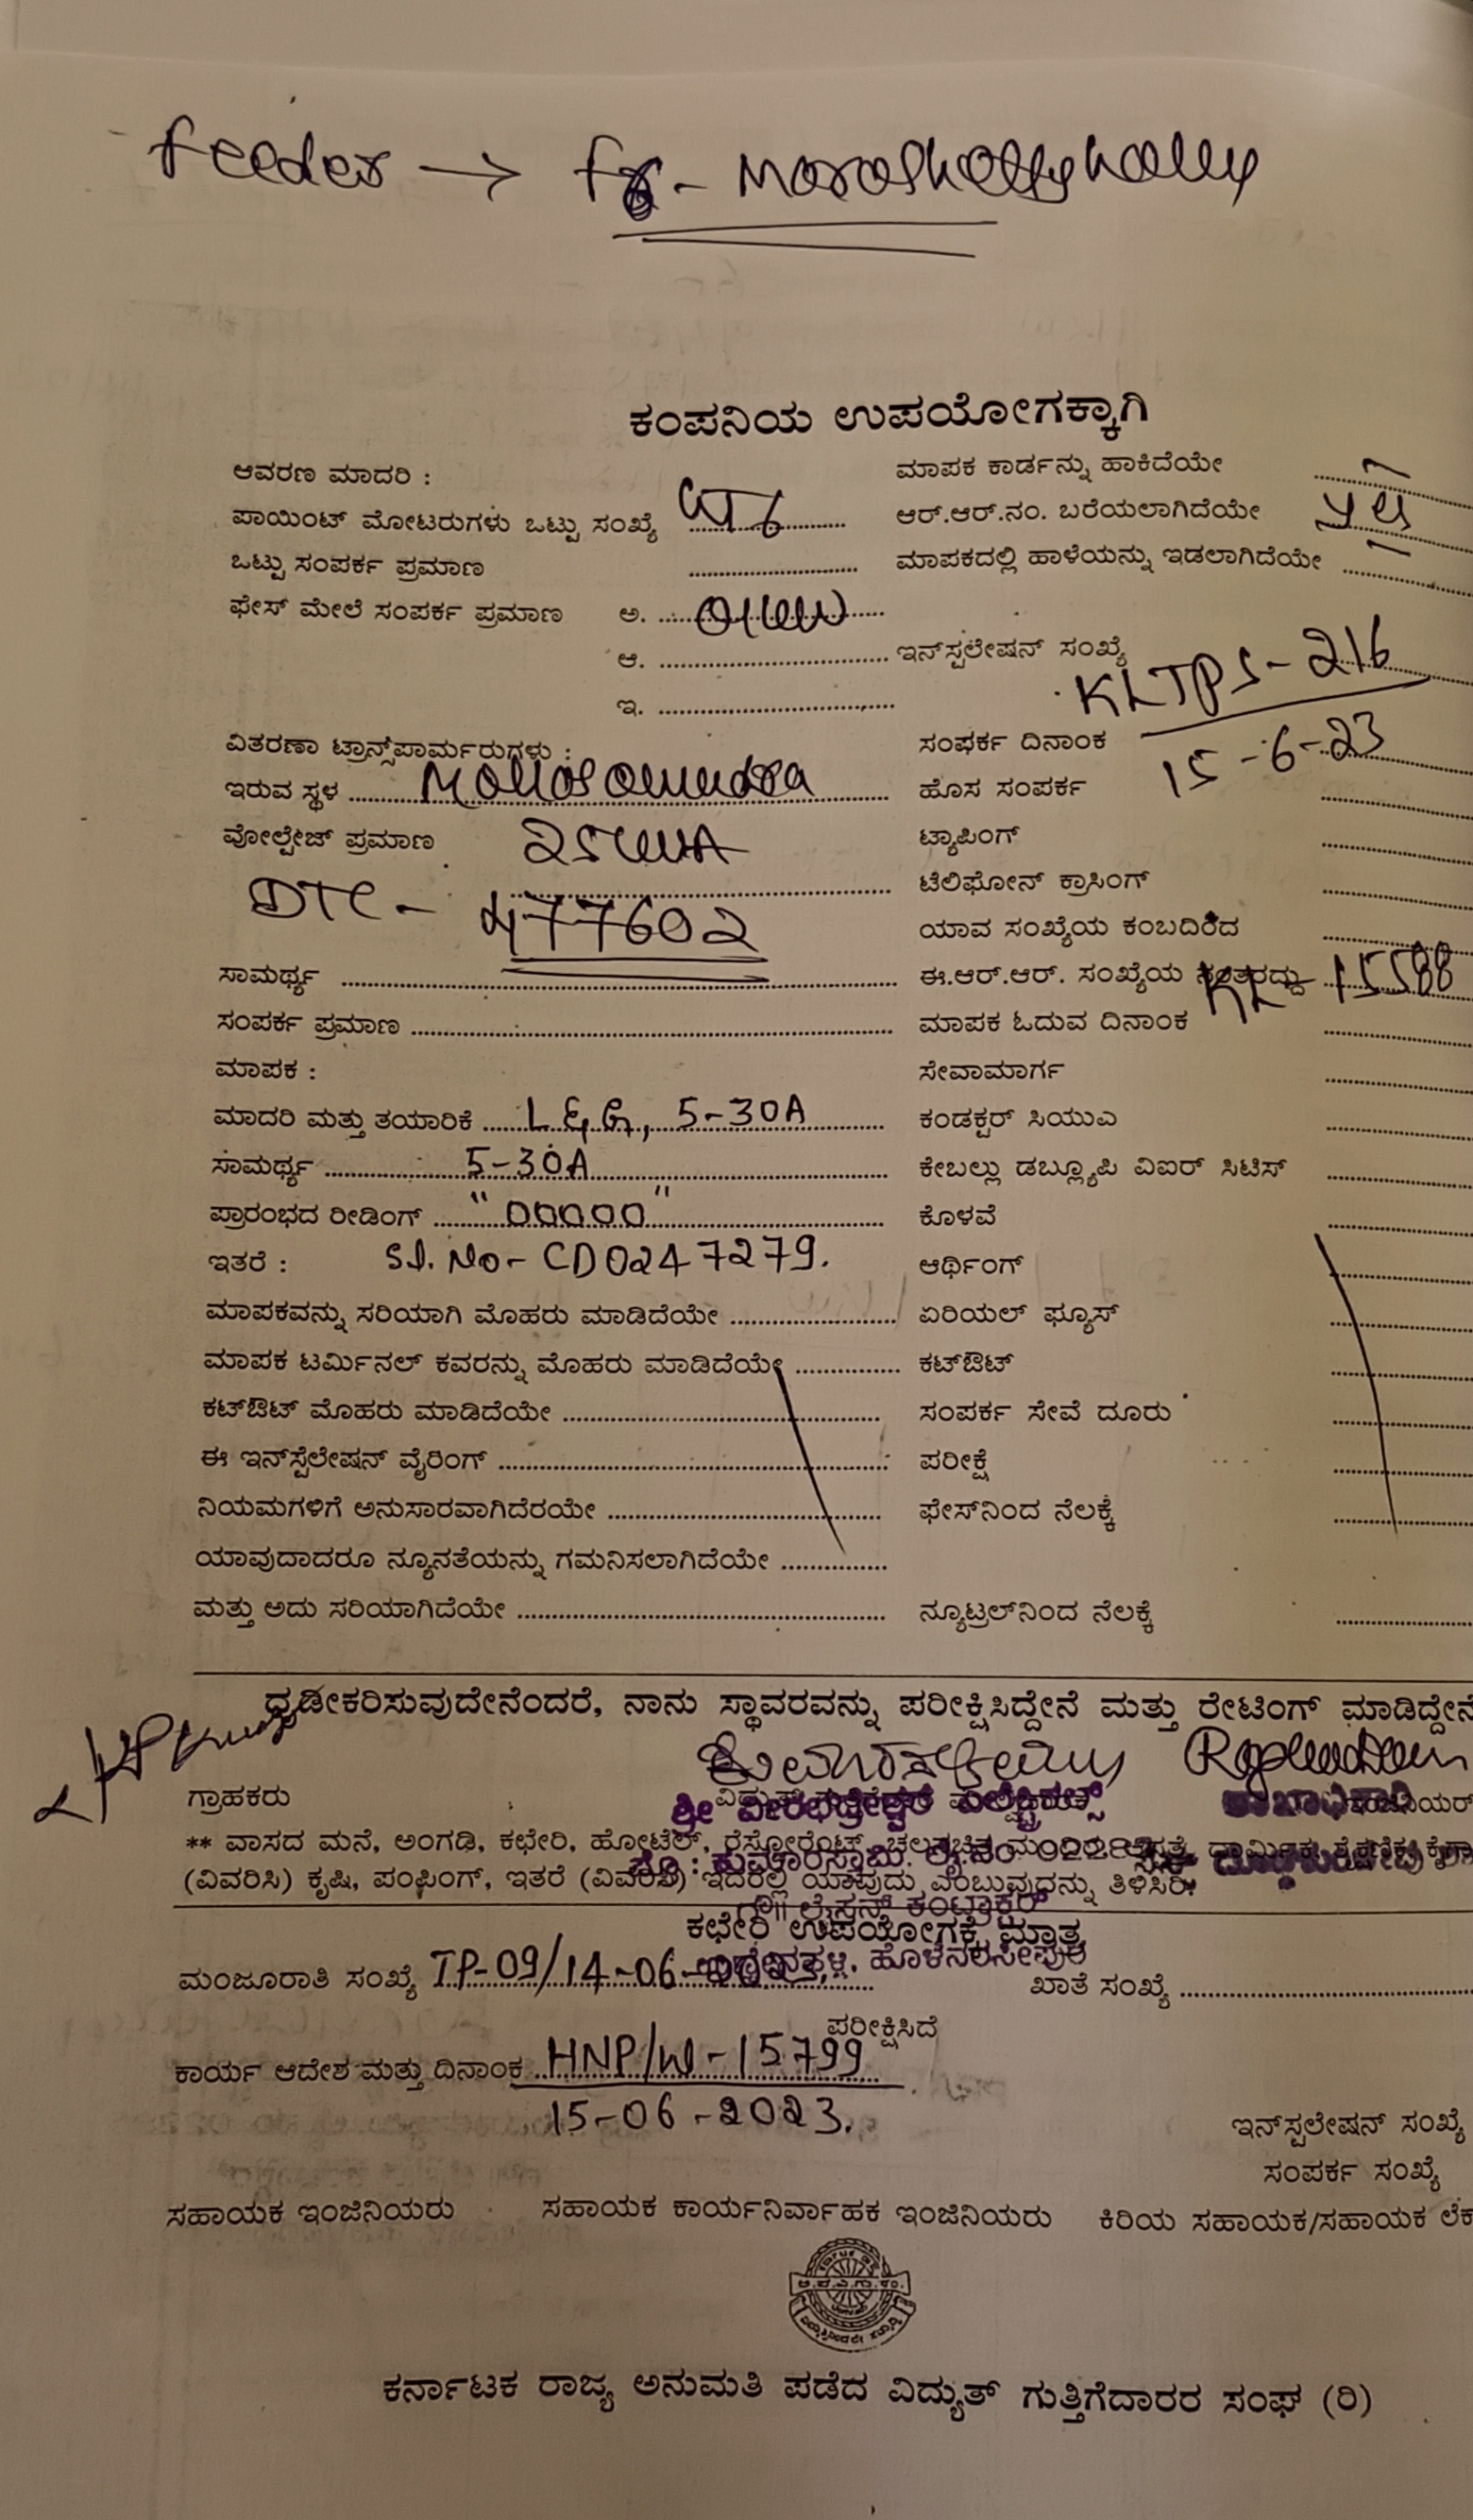 Feeder → F8 - Marashettyhally
ಕಂಪನಿಯ ಉಪಯೋಗಕ್ಕಾಗಿ
ಆವರಣ ಮಾದರಿ :
ಮಾಪಕ ಕಾರ್ಡನ್ನು ಹಾಕಿದೆಯೇ
ಪಾಯಿಂಟ್ ಮೋಟರುಗಳು ಒಟ್ಟು ಸಂಖ್ಯೆ
ಆರ್.ಆರ್.ನಂ. ಬರೆಯಲಾಗಿದೆಯೇ
ಒಟ್ಟು ಸಂಪರ್ಕ ಪ್ರಮಾಣ
ಮಾಪಕದಲ್ಲಿ ಹಾಳೆಯನ್ನು ಇಡಲಾಗಿದೆಯೇ
ಫೇಸ್ ಮೇಲೆ ಸಂಪರ್ಕ ಪ್ರಮಾಣ ಅ. 01KW
ಆ.
ಇನ್‌ಸ್ಪಲೇಷನ್ ಸಂಖ್ಯೆ KLTPS-216
ಇ.
ವಿತರಣಾ ಟ್ರಾನ್ಸ್‌ಪಾರ್ಮರುಗಳು :
ಸಂಪರ್ಕ ದಿನಾಂಕ 15-6-23
ಇರುವ ಸ್ಥಳ
ಹೊಸ ಸಂಪರ್ಕ
ವೋಲ್ಟೇಜ್ ಪ್ರಮಾಣ 25KVA
ಟ್ಯಾಪಿಂಗ್
DTC - 477602
ಟೆಲಿಫೋನ್ ಕ್ರಾಸಿಂಗ್
ಯಾವ ಸಂಖ್ಯೆಯ ಕಂಬದಿಂದ
ಸಾಮರ್ಥ್ಯ
ಈ.ಆರ್.ಆರ್. ಸಂಖ್ಯೆಯ ನಂತರದ್ದು KL 15588
ಸಂಪರ್ಕ ಪ್ರಮಾಣ
ಮಾಪಕ ಓದುವ ದಿನಾಂಕ
ಮಾಪಕ :
ಸೇವಾಮಾರ್ಗ
ಮಾದರಿ ಮತ್ತು ತಯಾರಿಕೆ L & G, 5-30A
ಕಂಡಕ್ಟರ್ ಸಿಯುಎ
ಸಾಮರ್ಥ್ಯ 5-30A
ಕೇಬಲ್ಲು ಡಬ್ಲ್ಯೂಪಿ ವಿಐರ್ ಸಿಟಿಸ್
ಪ್ರಾರಂಭದ ರೀಡಿಂಗ್ "00000"
ಕೊಳವೆ
ಇತರೆ : Sl. No- CD0247279.
ಆರ್ಥಿಂಗ್
ಮಾಪಕವನ್ನು ಸರಿಯಾಗಿ ಮೊಹರು ಮಾಡಿದೆಯೇ
ಏರಿಯಲ್ ಫ್ಯೂಸ್
ಮಾಪಕ ಟರ್ಮಿನಲ್ ಕವರನ್ನು ಮೊಹರು ಮಾಡಿದೆಯೇ
ಕಟ್‌ಔಟ್
ಕಟ್‌ಔಟ್ ಮೊಹರು ಮಾಡಿದೆಯೇ
ಸಂಪರ್ಕ ಸೇವೆ ದೂರು
ಈ ಇನ್‌ಸ್ಪೆಲೇಷನ್ ವೈರಿಂಗ್
ಪರೀಕ್ಷೆ
ನಿಯಮಗಳಿಗೆ ಅನುಸಾರವಾಗಿದೆರಯೇ
ಫೇಸ್‌ನಿಂದ ನೆಲಕ್ಕೆ
ಯಾವುದಾದರೂ ನ್ಯೂನತೆಯನ್ನು ಗಮನಿಸಲಾಗಿದೆಯೇ
ಮತ್ತು ಅದು ಸರಿಯಾಗಿದೆಯೇ
ನ್ಯೂಟ್ರಲ್‌ನಿಂದ ನೆಲಕ್ಕೆ
ಧೃಡೀಕರಿಸುವುದೇನೆಂದರೆ, ನಾನು ಸ್ಥಾವರವನ್ನು ಪರೀಕ್ಷಿಸಿದ್ದೇನೆ ಮತ್ತು ರೇಟಿಂಗ್ ಮಾಡಿದ್ದೇನೆ
ಗ್ರಾಹಕರು
ಶ್ರೀ ವೀರಭದ್ರೇಶ್ವರ ಎಲೆಕ್ಟ್ರಿಕಲ್ಸ್
** ವಾಸದ ಮನೆ, ಅಂಗಡಿ, ಕಛೇರಿ, ಹೋಟೆಲ್, ರೆಸ್ಟೋರೆಂಟ್, ಚಲನಚಿತ್ರ ಮಂದಿರ, ಆಸ್ಪತ್ರೆ, ಧಾರ್ಮಿಕ, ಶೈಕ್ಷಣಿಕ,
(ವಿವರಿಸಿ) ಕೃಷಿ, ಪಂಪಿಂಗ್, ಇತರೆ (ವಿವರಿಸಿ) ಇದರಲ್ಲಿ ಯಾವುದು ಎಂಬುವುದನ್ನು ತಿಳಿಸಿರಿ.
ಕಛೇರಿ ಉಪಯೋಗಕ್ಕೆ ಮಾತ್ರ
ಮಂಜೂರಾತಿ ಸಂಖ್ಯೆ TP-09/14-06-2023,
ಖಾತೆ ಸಂಖ್ಯೆ
ಪರೀಕ್ಷಿಸಿದೆ
ಕಾರ್ಯ ಆದೇಶ ಮತ್ತು ದಿನಾಂಕ HNP/W-15799
15-06-2023.
ಇನ್‌ಸ್ಪಲೇಷನ್ ಸಂಖ್ಯೆ
ಸಂಪರ್ಕ ಸಂಖ್ಯೆ
ಸಹಾಯಕ ಇಂಜಿನಿಯರು ಸಹಾಯಕ ಕಾರ್ಯನಿರ್ವಾಹಕ ಇಂಜಿನಿಯರು ಕಿರಿಯ ಸಹಾಯಕ/ಸಹಾಯಕ ಲೆಕ
ಕರ್ನಾಟಕ ರಾಜ್ಯ ಅನುಮತಿ ಪಡೆದ ವಿದ್ಯುತ್ ಗುತ್ತಿಗೆದಾರರ ಸಂಘ (ರಿ)